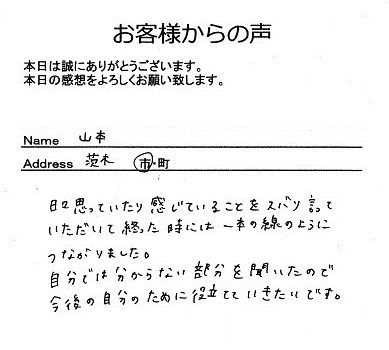 お客様からの声
本日は誠にありがとうございます。
本日の感想をよろしくお願い致します。
Name 山本
Address 茨木 市・町
日々思っていたり感じていることをズバリ言って
いただいて終った時には一本の線のように
つながりました。
自分では分からない部分を聞いたので
今後の自分のために役立てていきたいです。